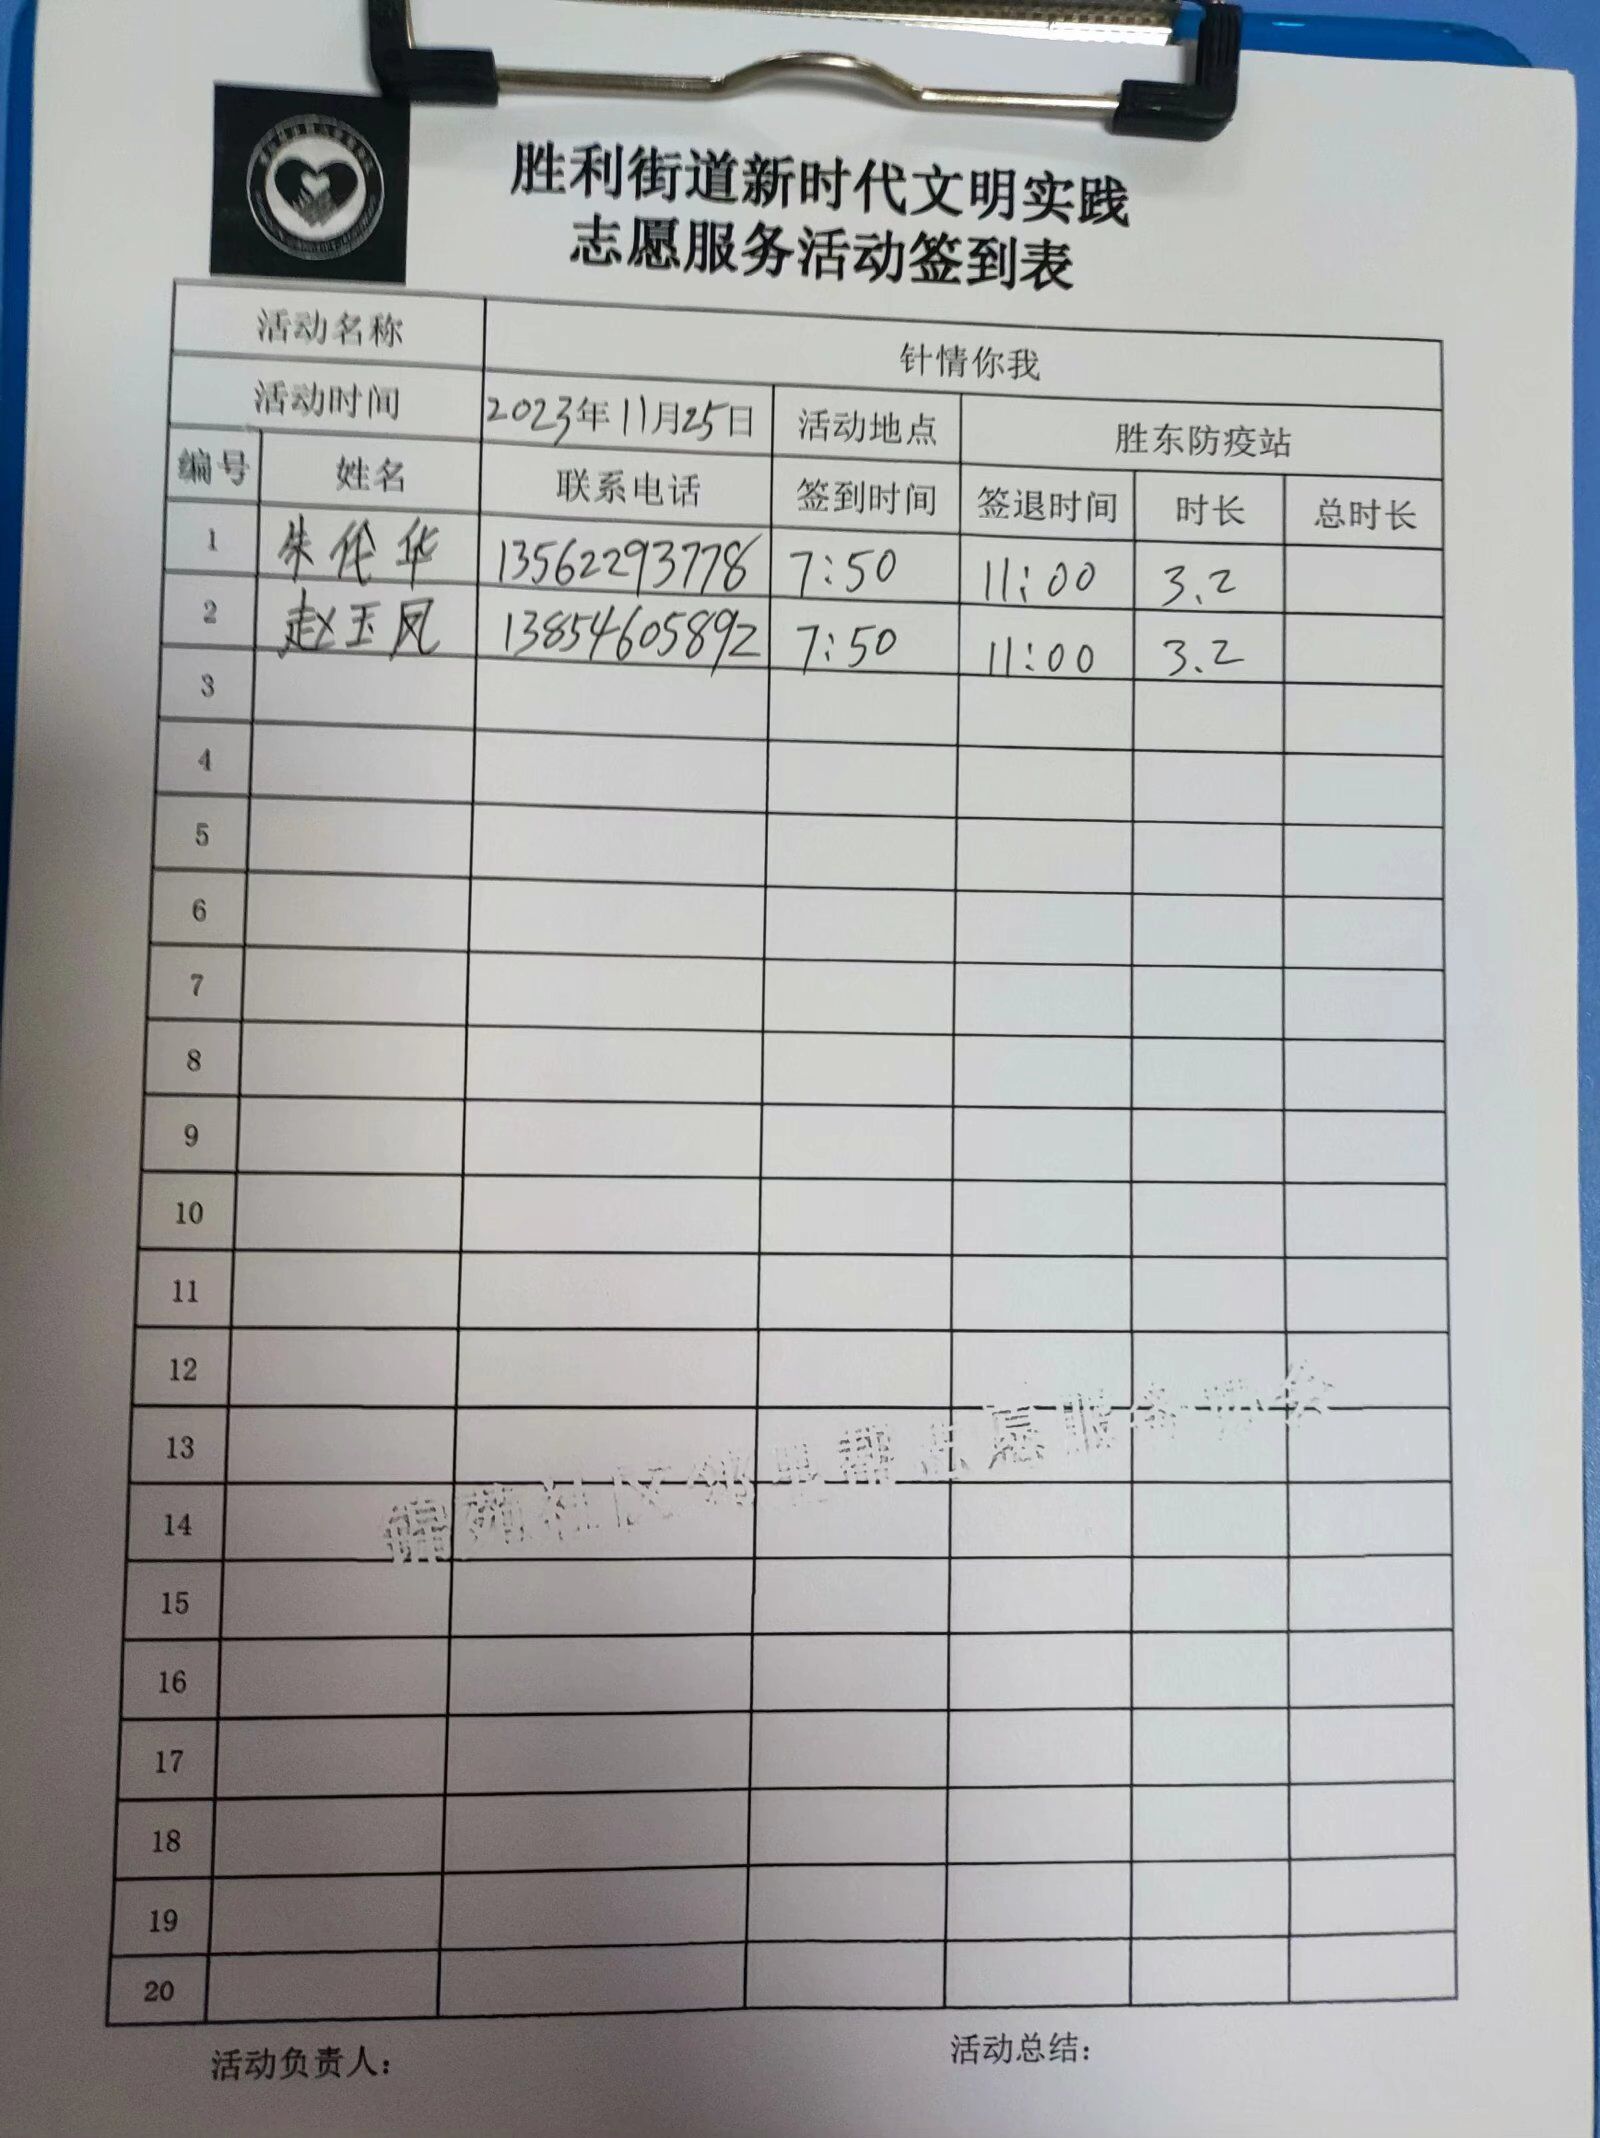 胜利街道新时代文明实践
志愿服务活动签到表
活动名称 针情你我
活动时间 2023年11月25日 活动地点 胜东防疫站
编号 姓名 联系电话 签到时间 签退时间 时长 总时长
1 朱伦华 13562293778 7:50 11:00 3.2
2 赵玉凤 13854605892 7:50 11:00 3.2
3
4
5
6
7
8
9
10
11
12
13
14
15
16
17
18
19
20
锦苑社区邻里帮志愿服务协会
活动负责人: 活动总结: